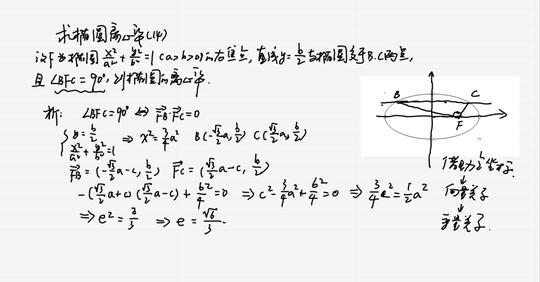 求椭圆离心率(14)
设F为椭圆 x²/a² + y²/b² = 1 (a>b>0)的右焦点, 直线y = b/2 与椭圆交于B.C两点,
且∠BFC = 90°, 则椭圆的离心率.
析: ∠BFC = 90° ⇔ FB·FC = 0
{ y = b/2
x²/a² + y²/b² = 1 ⇒ x² = 3/4 a² B(-√3/2 a, b/2) C(√3/2 a, b/2)
FB = (-√3/2 a - c, b/2) FC = (√3/2 a - c, b/2)
-(√3/2 a + c)(√3/2 a - c) + b²/4 = 0 ⇒ c² - 3/4 a² + b²/4 = 0 ⇒ 3/4 c² = 1/2 a²
⇒ e² = 2/3 ⇒ e = √6/3.
B C
F
借助点坐标
↓
向量关系
↓
变量关系.